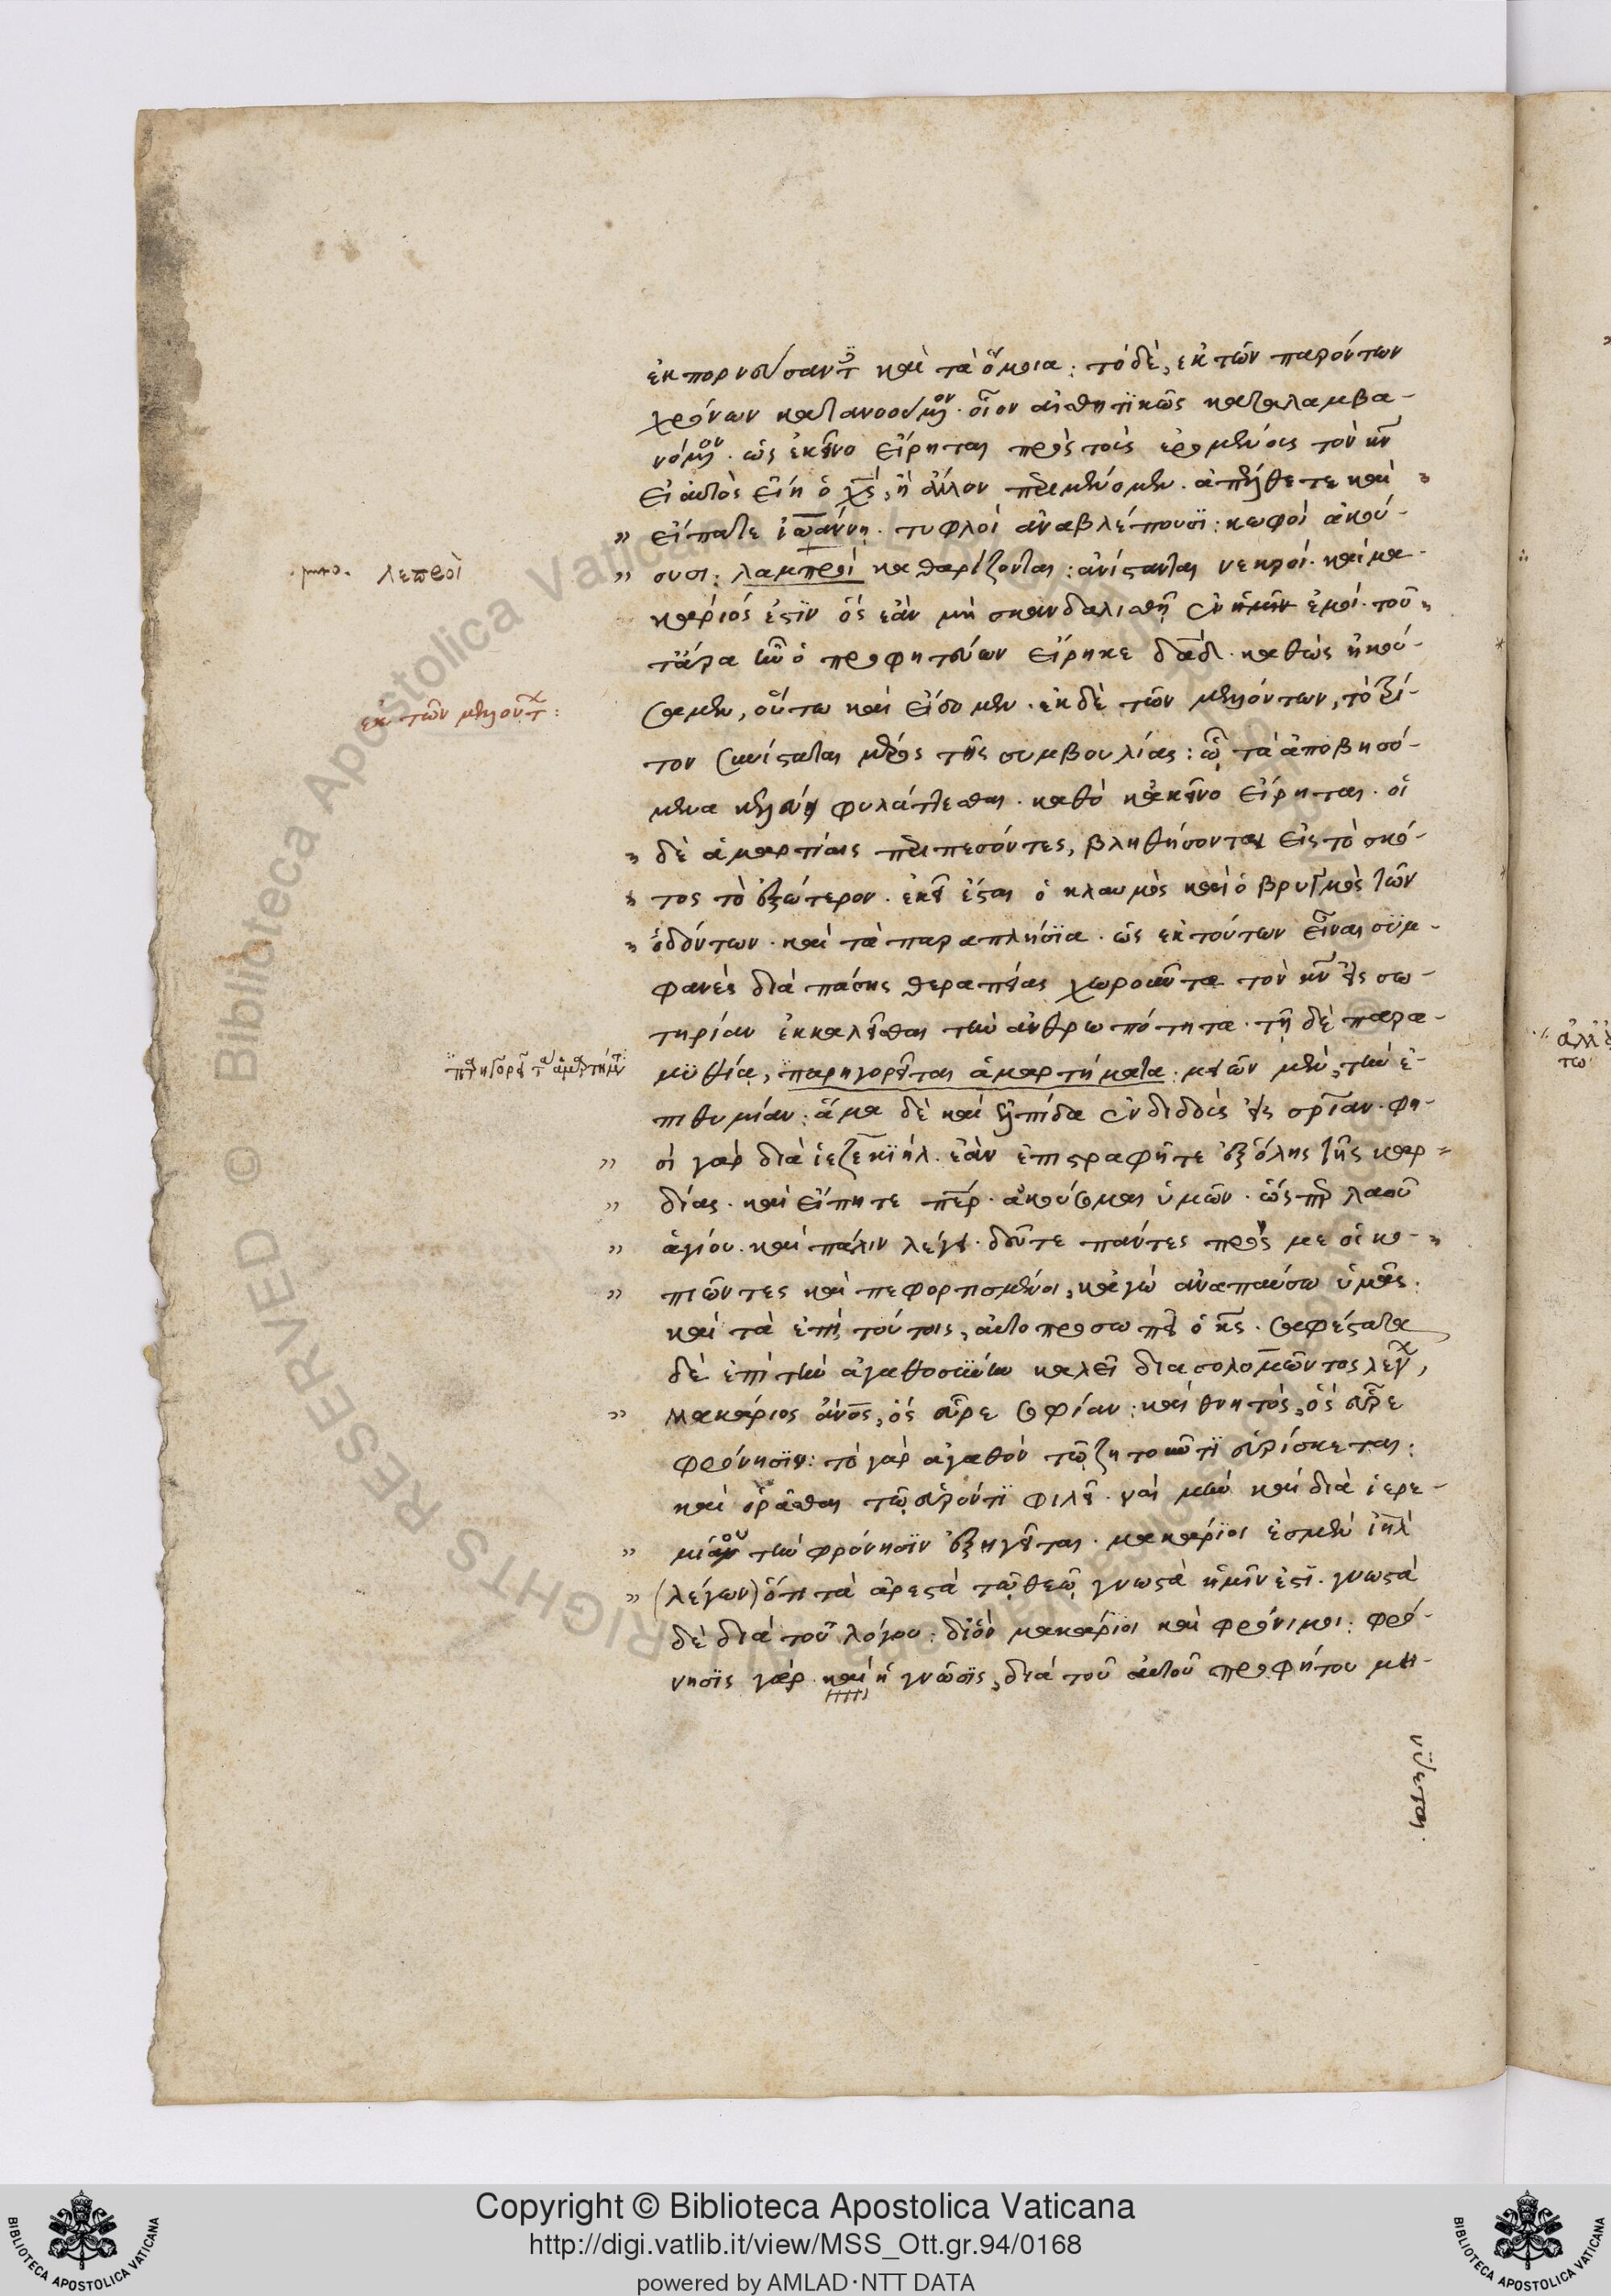 ἐκπορνεύσαντ καὶ τὰ ὅμοια: τὸ δὲ, ἐκ τῶν παρόντων
χρόνων κατανοούμενον. οἷον αἰσθητικῶς καταλαμβα-
νόμενον. ὡς ἐκεῖνο εἴρηται πρὸς τοὺς ἐρομένους τὸν κν
εἰ αὐτὸς εἴη ὁ χς, ἢ ἄλλον περιμένομεν. ἀπέλθετε καὶ
" εἴπατε ἰωάννῃ. τυφλοὶ ἀναβλέπουσι: κωφοὶ ἀκού-
. λεπροὶ
" ουσι: λαμπροὶ καθαρίζονται: ἀνίστανται νεκροί. καὶ μα-
κάριός ἐστιν ὃς ἐὰν μὴ σκανδαλισθῇ ἐν ἐμοί. τοῦ
τἄρα ἦν ὃ προφητεύων εἴρηκε δαδ. καθὼς ἠκού-
ἐκ τῶν μελλόντ:
σαμεν, οὕτω καὶ εἴδομεν. ἐκ δὲ τῶν μελλόντων, τὸ τρί-
τον συνίσταται μέρος τῆς συμβουλίας: ᾧ τὰ ἀποβησό-
μενα κελεύει φυλάττεσθαι. καθὸ κἀκεῖνο εἴρηται. οἱ
" δὲ ἁμαρτίαις περιπεσόντες, βληθήσονται εἰς τὸ σκό-
" τος τὸ ἐξώτερον. ἐκεῖ ἔσται ὁ κλαυμὸς καὶ ὁ βρυγμὸς τῶν
" ὀδόντων. καὶ τὰ παραπλήσια. ὡς ἐκ τούτων εἶναι συμ-
φανὲς διὰ πάσης θεραπείας χωροῦντα τὸν κν εἰς σω-
τηρίαν ἐκκαλεῖσθαι τὴν ἀνθρωπότητα. τῇ δὲ παρα-
μυθίᾳ, παρηγορεῖται ἁμαρτήματα. μειῶν μὲν, τὴν ἐ-
πιθυμίαν: ἅμα δὲ καὶ ἐλπίδα ἐνδιδοὺς εἰς σρίαν. φη-
" σὶ γὰρ διὰ ἰεζεκιὴλ. ἐὰν ἐπιστραφῆτε ἐξ ὅλης τῆς καρ-
" δίας. καὶ εἴπητε περ. ἀκούσομαι ὑμῶν. ὥσπερ λαοῦ
" ἁγίου. καὶ πάλιν λέγει. δεῦτε πάντες πρός με οἱ κο-
" πιῶντες καὶ πεφορτισμένοι, κἀγὼ ἀναπαύσω ὑμᾶς.
καὶ τὰ ἐπὶ τούτοις, αὐτοπροσωπεῖ ὁ κς. σαφέστατα
δὲ ἐπὶ τὴν ἀγαθοσύνην καλεῖ διὰ σολομῶντος λέγ,
" μακάριος ἄνος, ὃς εὗρε σοφίαν: καὶ θνητὸς, ὃς εὗρε
φρόνησιν: τὸ γὰρ ἀγαθὸν τῷ ζητοῦντι εὑρίσκεται:
καὶ ὁρᾶσθαι τῷ εὑρόντι φιλεῖ. ναὶ μὴν καὶ διὰ ἱερε-
" μίου τὴν φρόνησιν ἐξηγεῖται. μακάριοι ἐσμὲν ἰηλ
" (λέγων) ὅτι τὰ ἀρεστὰ τῷ θεῷ γνωστὰ ἡμῖν ἐστὶ. γνωστὰ
δὲ διὰ τοῦ λόγου: δι᾽ ὃν μακάριοι καὶ φρόνιμοι: φρό-
νησις γὰρ καὶ ἡ γνῶσις, διὰ τοῦ αὐτοῦ προφήτου μη-
νύεται.
Copyright © Biblioteca Apostolica Vaticana
http://digi.vatlib.it/view/MSS_Ott.gr.94/0168
powered by AMLAD·NTT DATA
BIBLIOTECA APOSTOLICA VATICANA
BIBLIOTECA APOSTOLICA VATICANA